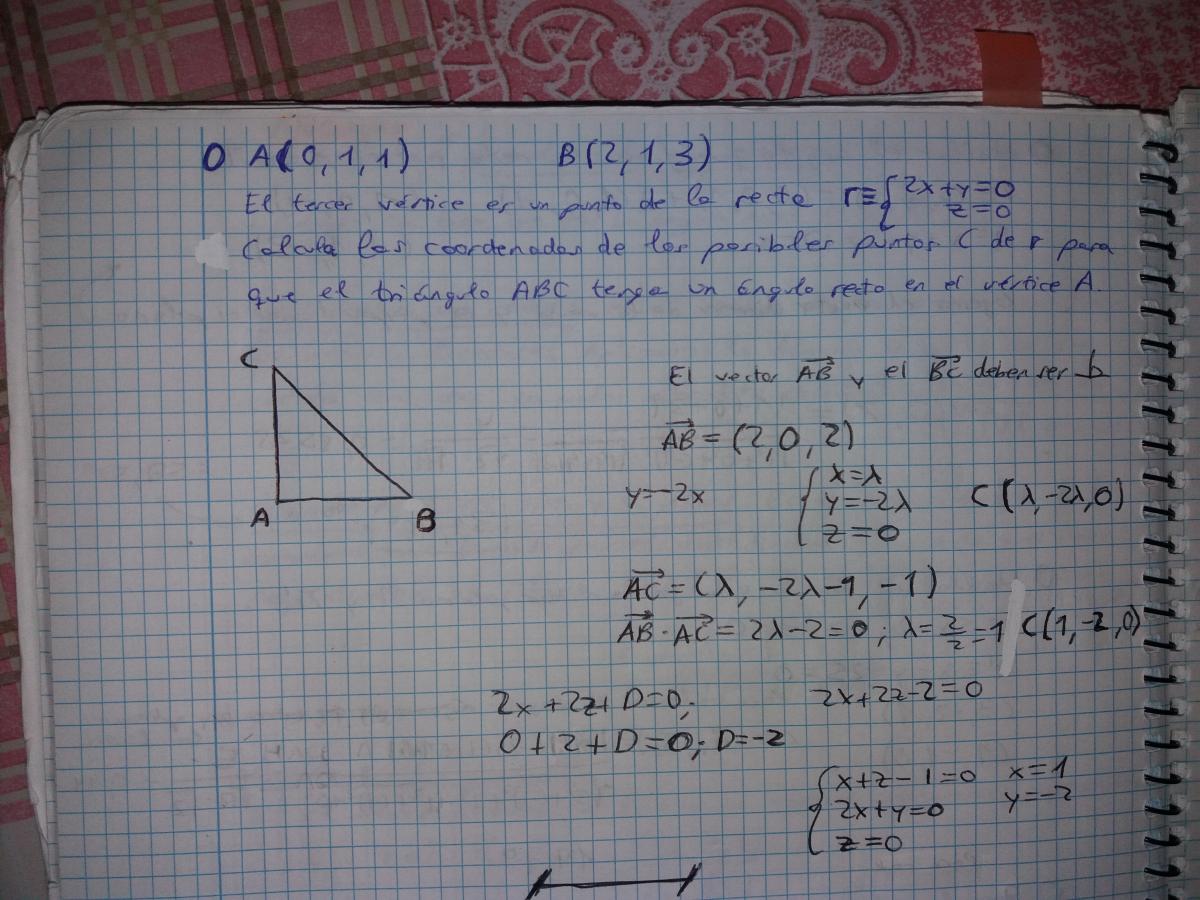 O A(0, 1, 1) B(2, 1, 3)
El tercer vértice es un punto de la recta r≡{2x+y=0
z=0
Calcula las coordenadas de los posibles puntos C de r para
que el triángulo ABC tenga un ángulo recto en el vértice A.
C
A
B
El vector AB y el BC deben ser
AB = (2, 0, 2)
y=-2x
{x=λ
y=-2λ
z=0
C(λ,-2λ,0)
AC = (λ, -2λ-1, -1)
AB·AC = 2λ-2=0; λ=2/2=1 C(1,-2,0)
2x+2z+D=0; 2x+2z-2=0
0+2+D=0; D=-2
{x+z-1=0 x=1
2x+y=0 y=-2
z=0